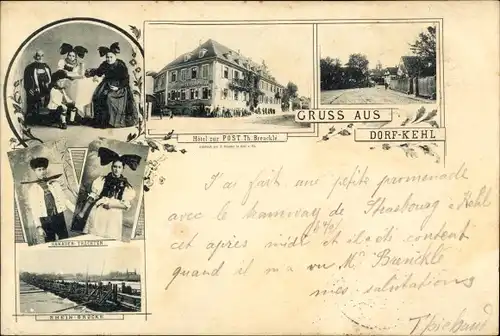 GRUSS AUS
DORF-KEHL
Hôtel zur POST, Th. Breuckle.
HANAUER TRACHTEN
RHEIN-BRÜCKE
J'ai fait une petite promenade
avec le tramway de Strasbourg à Kehl
cet après midi et
content
quand il m'a vu Mr Breuckle
mes salutations